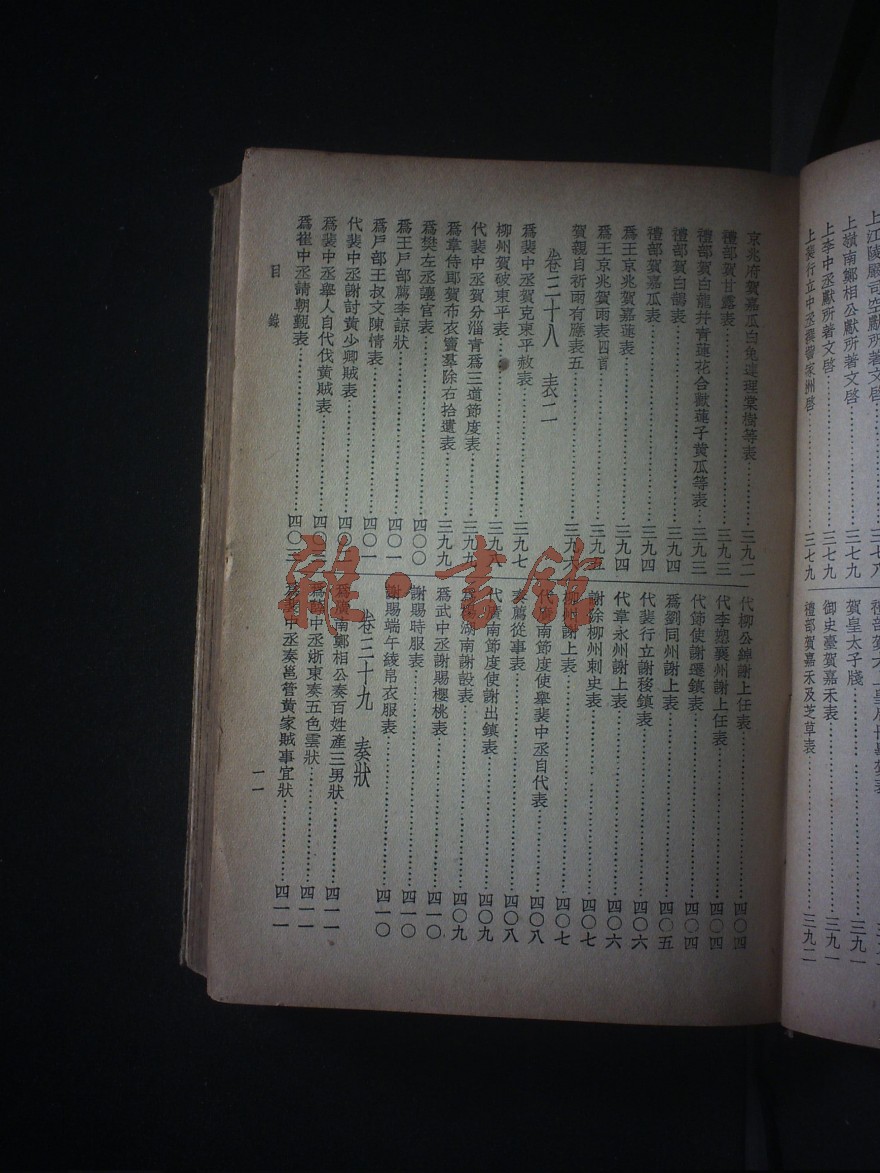 上江陵嚴司空獻所著文啓……三七八
上嶺南鄭相公獻所著文啓……三七九
上李中丞獻所著文啓……三七九
上裴行立中丞撰訾家洲啓……三七九
賀皇太子牋……三九一
御史臺賀嘉禾表……三九一
禮部賀嘉禾及芝草表……三九二
京兆府賀嘉瓜白兔連理棠樹等表……三九二
禮部賀甘露表……三九三
禮部賀白龍并青蓮花合歡蓮子黃瓜等表……三九三
禮部賀白鵲表……三九四
禮部賀嘉瓜表……三九四
爲王京兆賀嘉蓮表……三九四
爲王京兆賀雨表四首……三九五
賀親自祈雨有應表五……三九六
卷三十八 表二
爲裴中丞賀克東平赦表……三九七
柳州賀破東平表……三九八
代裴中丞賀分淄青爲三道節度表……三九九
爲韋侍郎賀布衣竇羣除右拾遺表……三九九
爲樊左丞讓官表……四〇〇
爲王戶部薦李諒狀……四〇一
爲戶部王叔文陳情表……四〇一
代裴中丞謝討黃少卿賊表……四〇二
爲裴中丞舉人自代伐黃賊表……四〇二
爲崔中丞請朝覲表……四〇三
代柳公綽謝上任表……四〇四
代李愬襄州謝上任表……四〇四
代節使謝遷鎮表……四〇四
爲劉同州謝上表……四〇五
代裴行立謝移鎮表……四〇六
代韋永州謝上表……四〇六
謝除柳州刺史表……四〇七
柳州謝上表……四〇七
代廣南節度使舉裴中丞自代表……四〇八
奏薦從事表……四〇八
代廣南節度使謝出鎮表……四〇九
湖南謝設表……四〇九
爲武中丞謝賜櫻桃表……四一〇
謝賜時服表……四一〇
謝賜端午綾帛衣服表……四一〇
卷三十九 奏狀
爲廣南鄭相公奏百姓產三男狀……四一一
中丞浙東奏五色雲狀……四一一
爲裴中丞奏邕管黃家賊事宜狀……四一一
目錄
一一
雜·書館